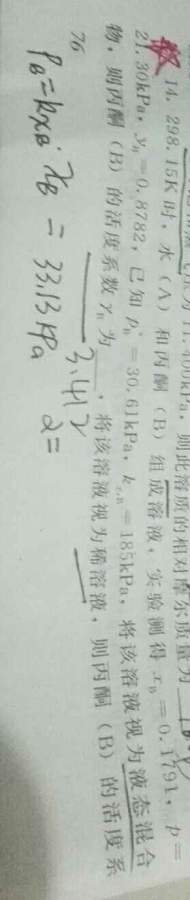 .400kPa，则此溶质的相对摩尔质量为
14. 298.15K时，水（A）和丙酮（B）组成溶液，实验测得 x_B=0.1791，p=
21.30kPa，y_B=0.8782，已知 p_B^*=30.61kPa，k_{x,B}=185kPa，将该溶液视为液态混合
物，则丙酮（B）的活度系数γ_B为 3.412 ，将该溶液视为稀溶液，则丙酮（B）的活度系
76
P_B=kx_B·x_B=33.13kPa